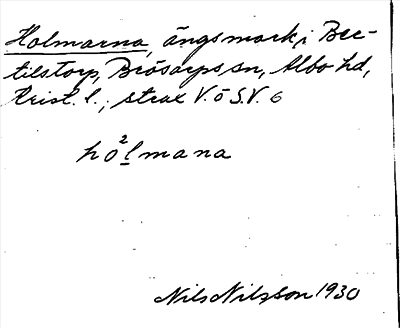 Holmarna, ängsmark i Ber-
tilstorp, Brösarps sn, Albo hd,
Krist. l.; strax V. o S.V. 6
hò²lmana
Nils Nilsson 1930